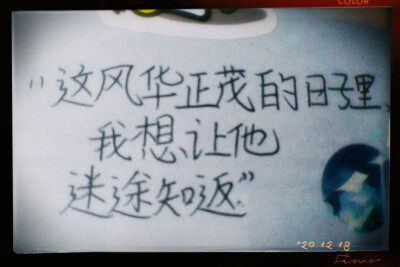 COLOR
“这风华正茂的日子里、
我想让他
迷途知返”
'20.12.18